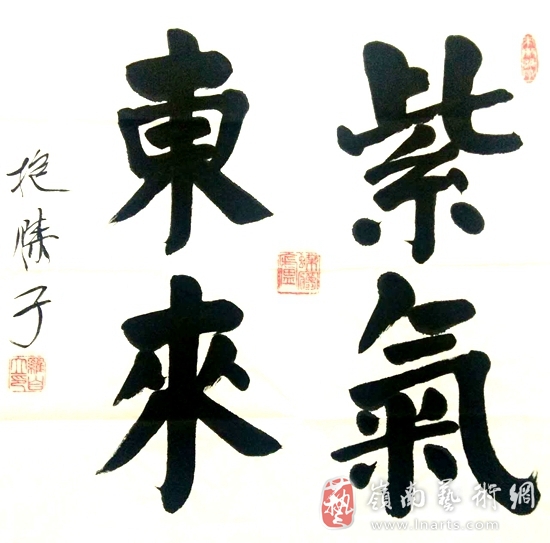 紫氣
東來
抱情子
嶺南藝術網
www.lnarts.com